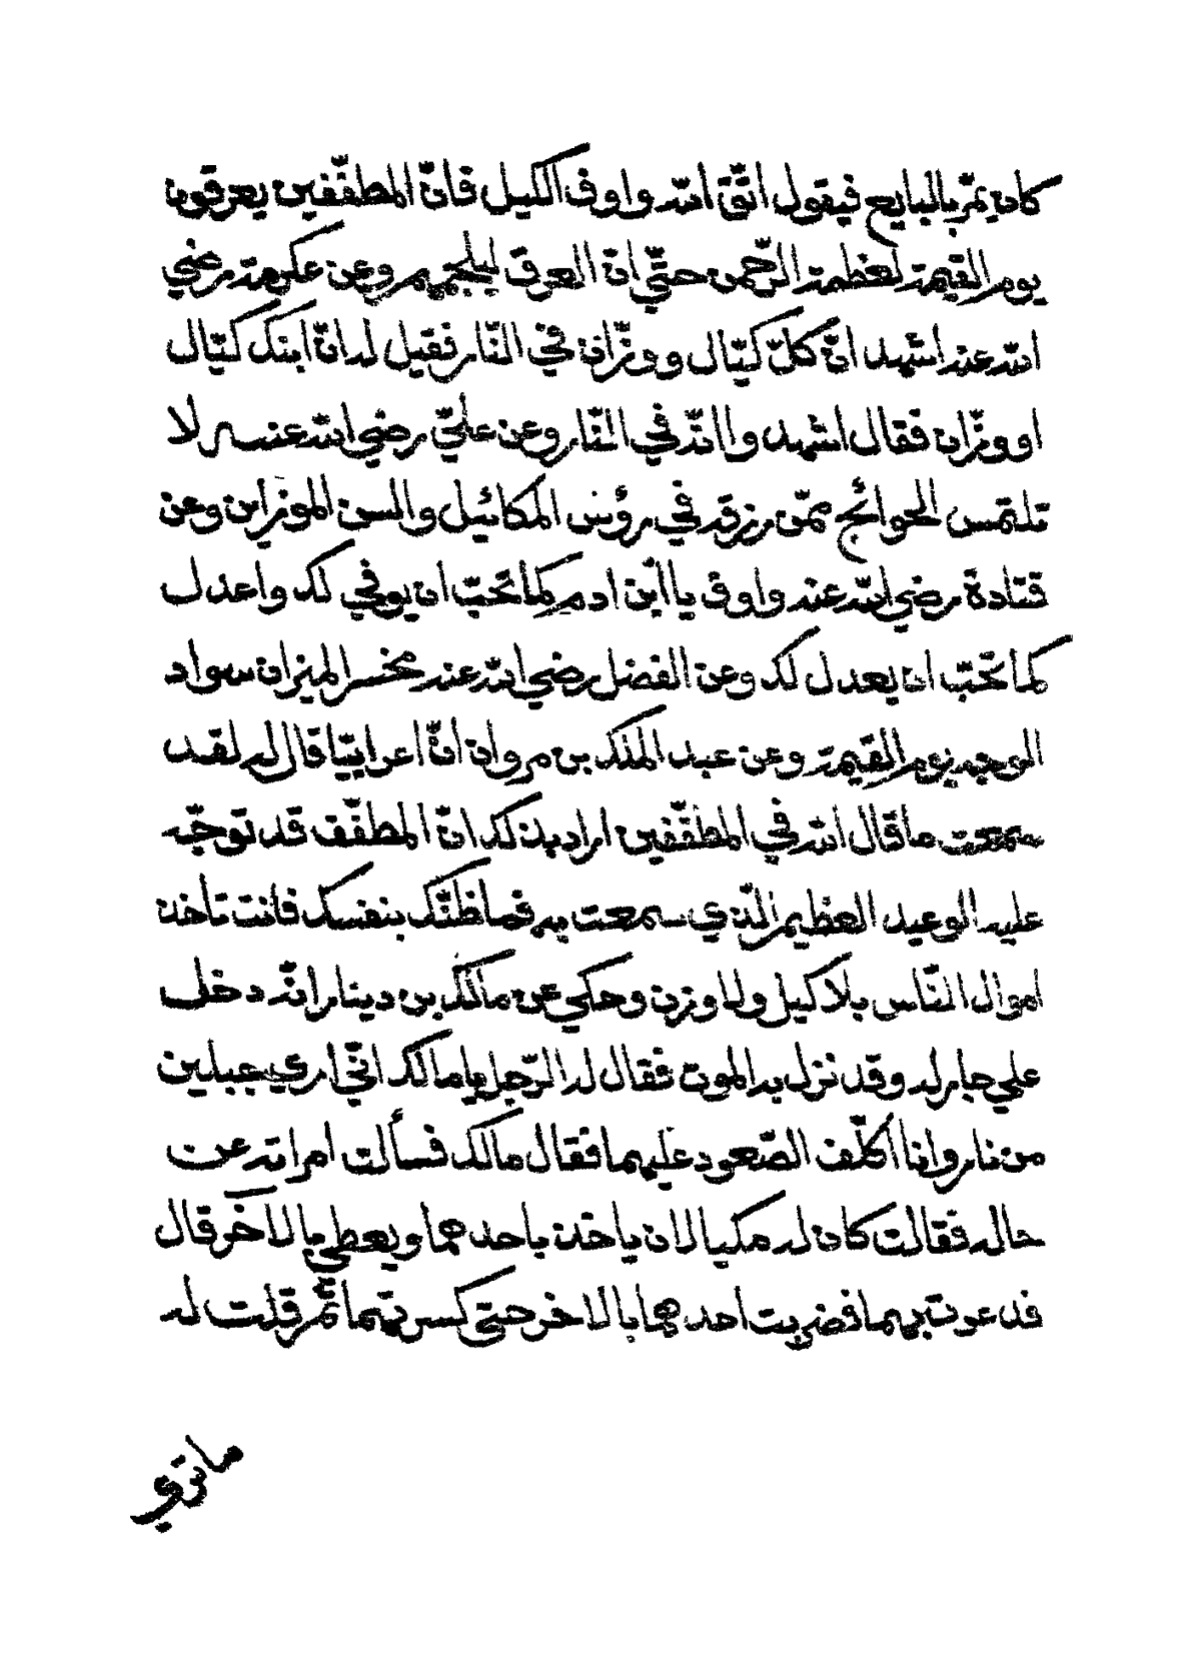 كان يمرّ بالبايع فيقول اتّق الله واوف الكيل فانّ المطفّفين يعرقون
يوم القيمة لعظمة الرّحمن حتّي ان العرق ليلجمهم وعن عكرمة رضي
الله عنه اشهد انّ كلّ كيّال ووزّان في النّار فقيل له انّ ابنك كيّال
او وزّان فقال اشهد وا انّه في النّار وعن عليّ رضي الله عنه لا
تلتمس الحوائج ممّن رزقه في رؤس المكائيل والسن الموازين وعن
قتادة رضي الله عنه واوف يا ابن ادم كما تحبّ ان يوفي لك واعدل
كما تحبّ ان يعدل لك وعن الفضل رضي الله عنه مخسر الميزان سواد
الوجه يوم القيمة وعن عبد الملك بن مروان انّ اعرابيّا قال له لقد
سمعت ما قال الله في المطفّفين اراد بذلك انّ المطفّف قد توجّه
عليه الوعيد العظيم الّذي سمعت به فما ظنّك بنفسك فانت تاخذ
اموال النّاس بلا كيل ولا وزن وحكي عن مالك بن دينار انّه دخل
علي جار له وقد نزل به الموت فقال له الرّجل يا مالك انّي اري جبلين
من نار وانا اكلّف الصّعود عليهما فقال مالك فسألت امراته عن
حاله فقالت كان له مكيالان ياخذ باحدهما ويعطي بالآخر قال
فدعوت بهما فضربت احدهما بالاخر حتي كسرتهما ثمّ قلت له
ما تري